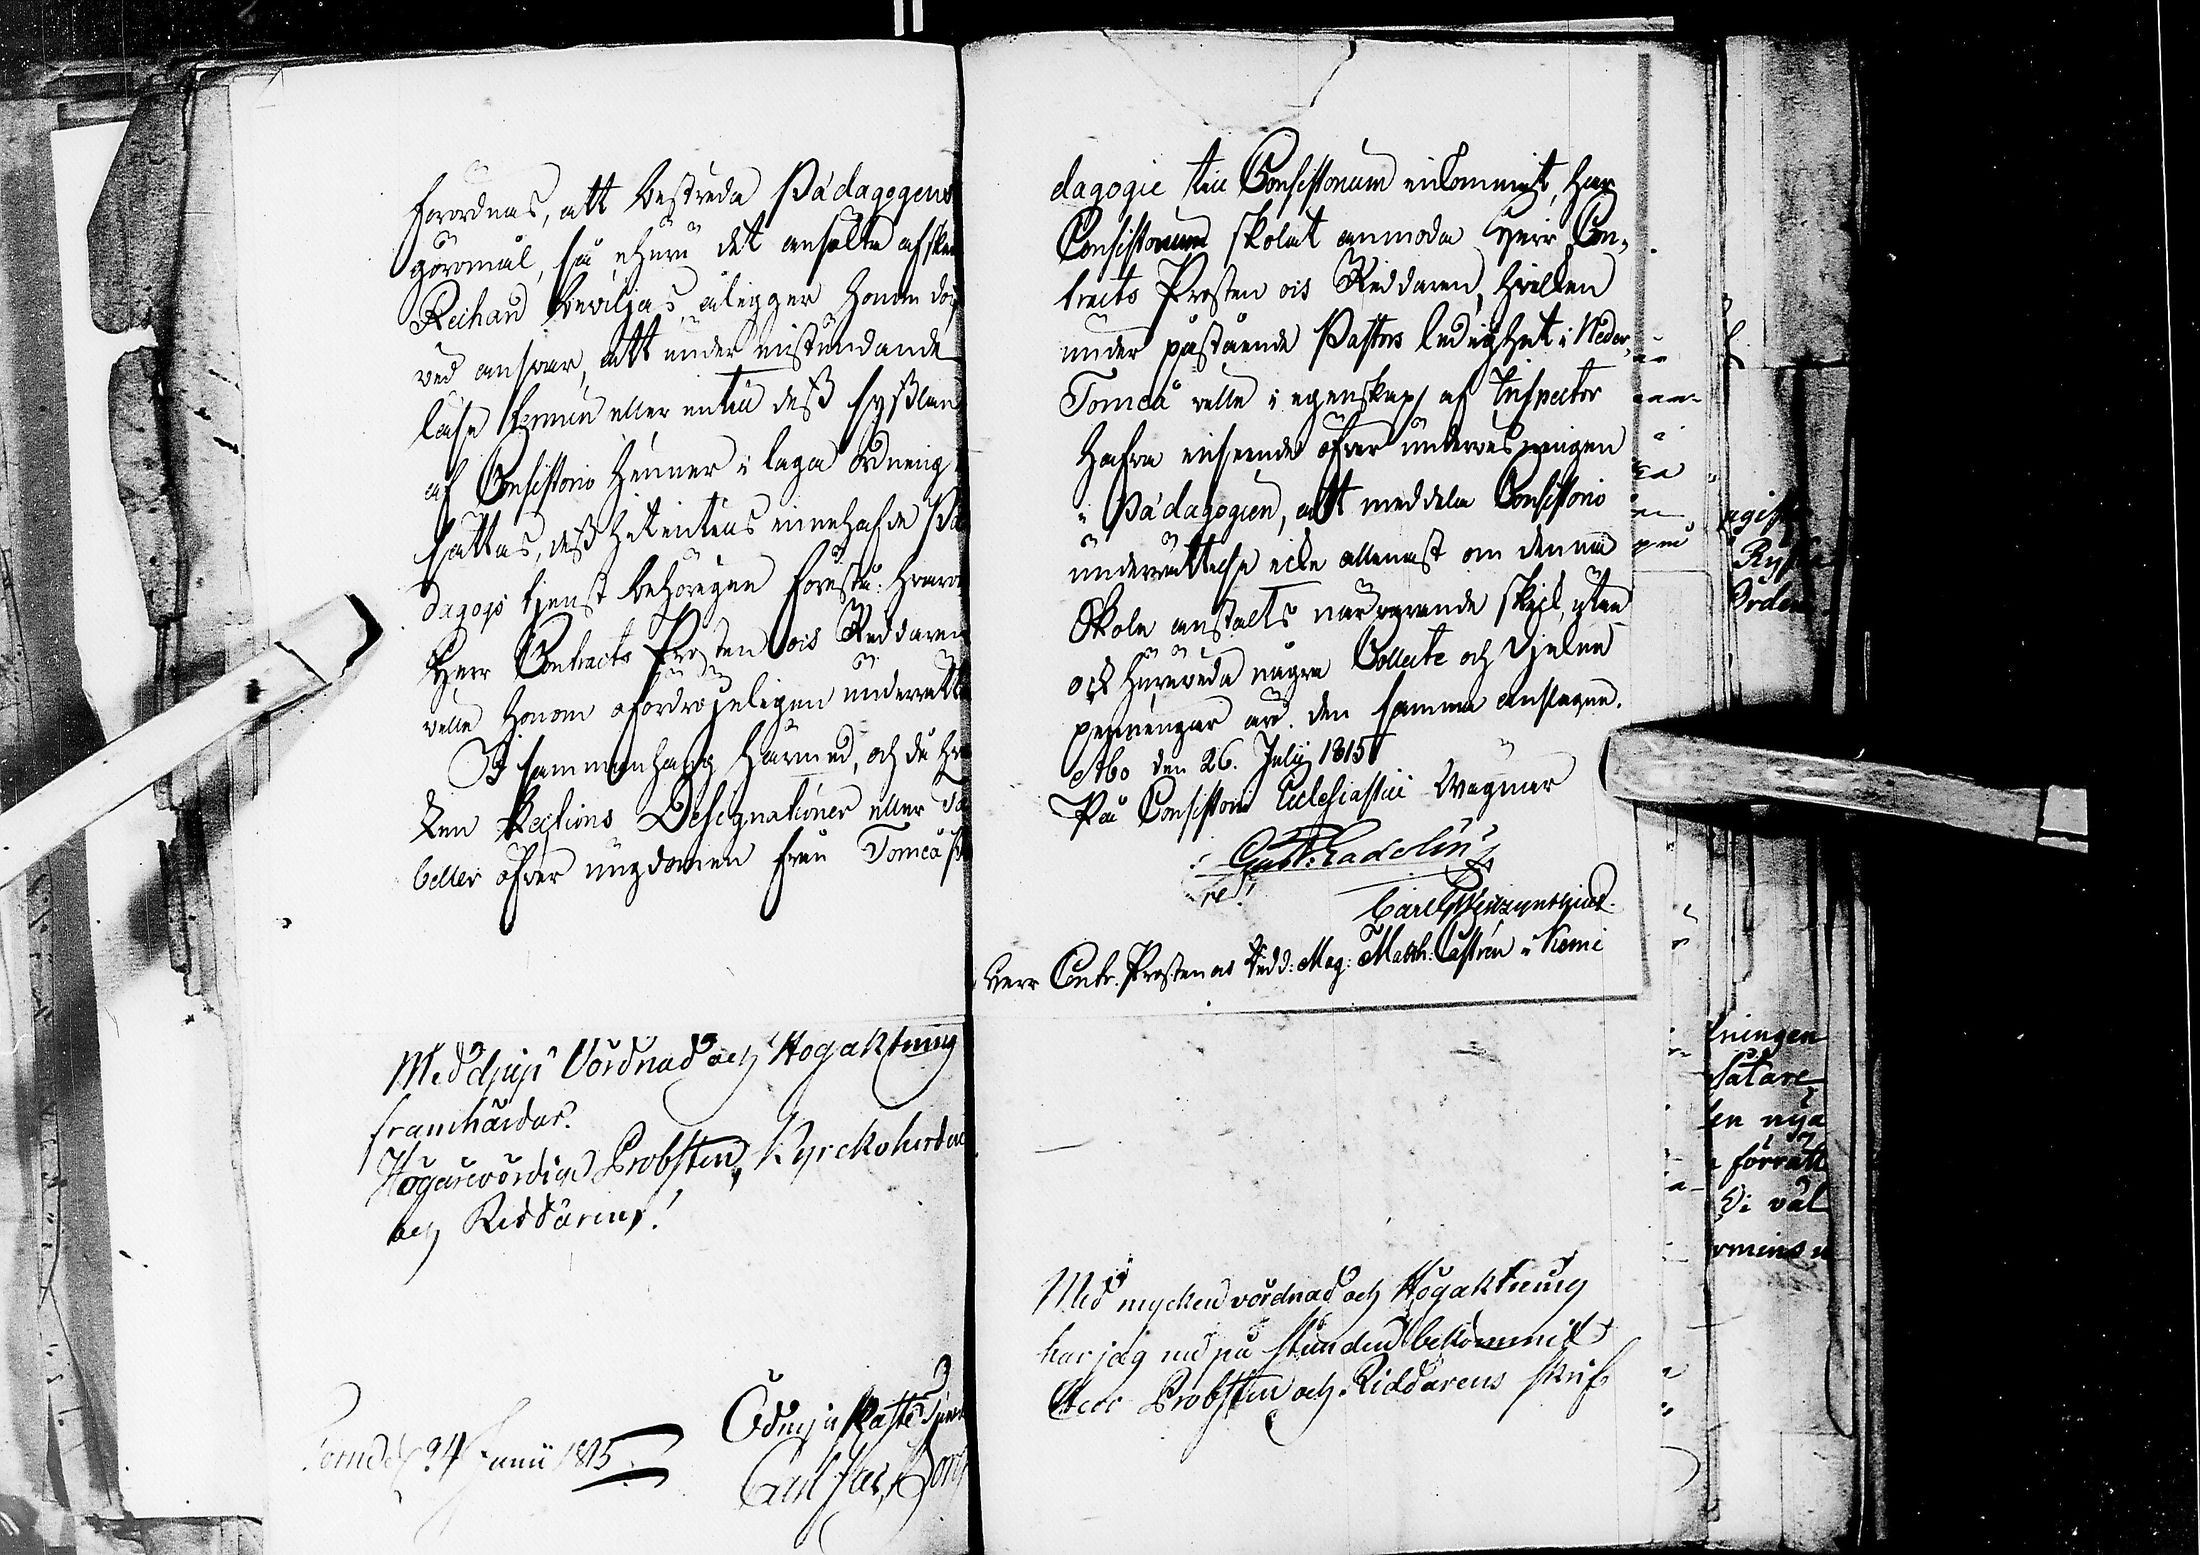 förordnas, att bestrida Pädagogens
göromål, så ehuru det ansökta afske
Reihan beviljas, ålägger honom doc
ved answar, att under instundande
läse termin eller intill dess sysslan
af Consistorio hinner i laga ordning
sättas, dess hitintils innehafde Pä
dagogs tjenst behörigen förestå: hvarom
Herr Contracts Prosten och Riddaren
ville honom ofördröjeligen underrätta
I sammanhang härmed, och då hvar
ken Lections Designationer eller Ta
beller öfver ungdomen från Torneå Pä
Med djup Vördnad och Högaktning
framhärdar.
Högärevördige Probsten, Kyrckoherden
och Riddarens!
Torneå d. 24 Junii 1815
Ödmjukaste Tjenare
Carl
dagogie till Consistorium inkommit, har
Consistorium skolat anmoda Herr Con-
tracts Prosten och Riddaren, hvilken
under påstående Pastors ledighet i Neder
Torneå ville i egenskap af Inspector
hafva inseende öfver undervisningen
i Pädagogien, att meddela Consistorio
underrättelse icke allenast om denna
Skole anstalts närvarande skick, utan
ock huruvida några Collecte och Djekne
penningar äro den samma anslagne.
Åbo den 26. July 1815
På Consistorii Ecclesiastici Wägnar
Gust: Gadolin
Carl
Herr Contr. Prosten och Ridd: Mag: Matth: Castrén i Kemi
Med mycken vördnad och Högaktning
har jag nu på stunden bekommit
Herr Probsten och Riddarens skrif
ningen
en nya
förrätt
Di väl